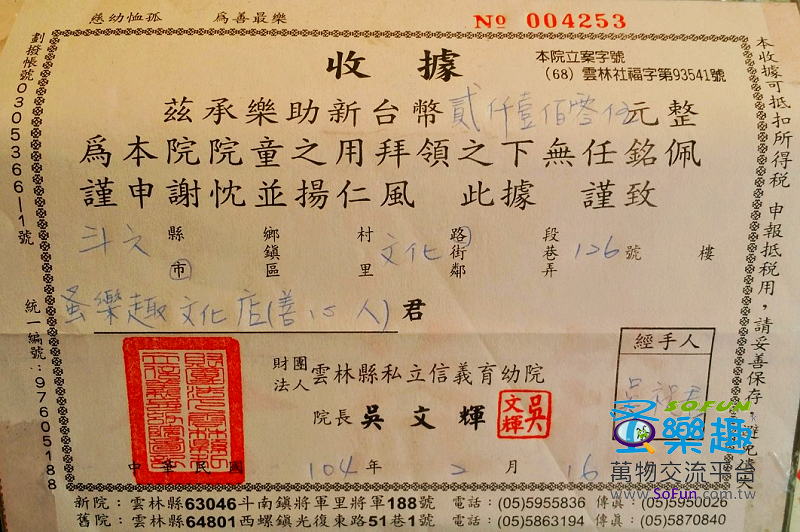 慈幼恤孤
為善最樂
No 004253
收據
本院立案字號
(68) 雲林社福字第93541號
茲承樂助新台幣貳仟壹佰零伍元整
為本院院童之用拜領之下無任銘佩
謹申謝忱並揚仁風 此據 謹致
斗六縣市 鄉鎮區 村里 文化路街鄰 段巷弄 126號 樓
蚤樂趣文化店(善心人)君
經手人
財團法人 雲林縣私立信義育幼院
院長 吳文輝
吳文輝
中華民國 104年 2月 16
新院：雲林縣63046斗南鎮將軍里將軍188號 電話：(05)5955836 傳真：(05)5950026
舊院：雲林縣64801西螺鎮光復東路51巷1號 電話：(05)5863194 傳真：(05)5870840
劃撥帳號0305366—1號
統一編號：97605188
本收據可抵扣所得稅 申報抵稅用，請妥善保存
SOFUN
蚤樂趣
萬物交流平台
www.SoFun.com.tw